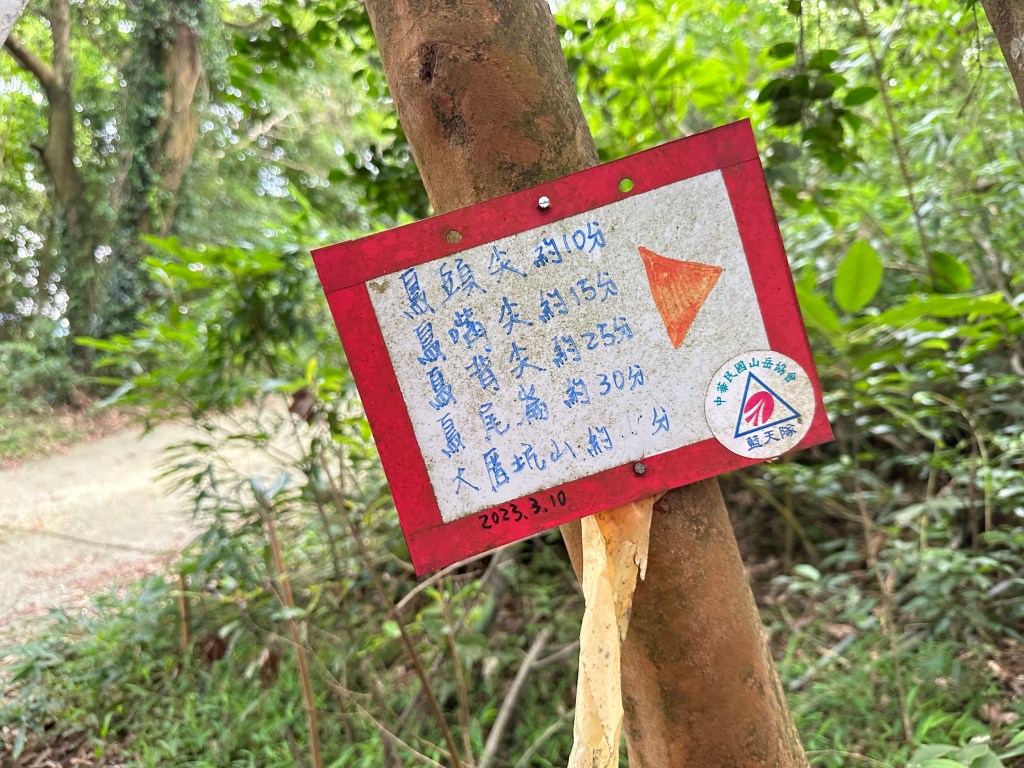 鳶頭尖 約10分
鳶嘴尖 約15分
鳶背尖 約25分
鳶尾崙 約30分
大厝坑山 約 分
2023.3.10
中華民國山岳協會
藍天隊